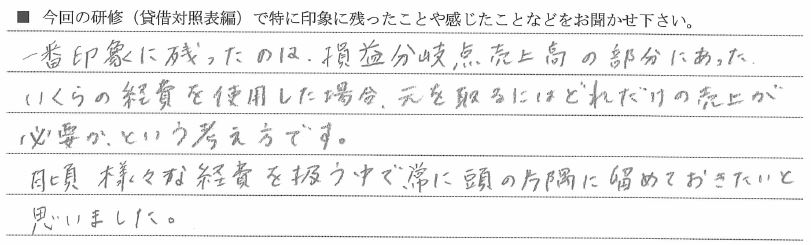 ■ 今回の研修（貸借対照表編）で特に印象に残ったことや感じたことなどをお聞かせ下さい。
一番印象に残ったのは、損益分岐点売上高の部分にあった
いくらの経費を使用した場合、元を取るにはどれだけの売上が
必要か、という考え方です。
日頃 様々な経費を扱う中で常に頭の片隅に留めておきたいと
思いました。